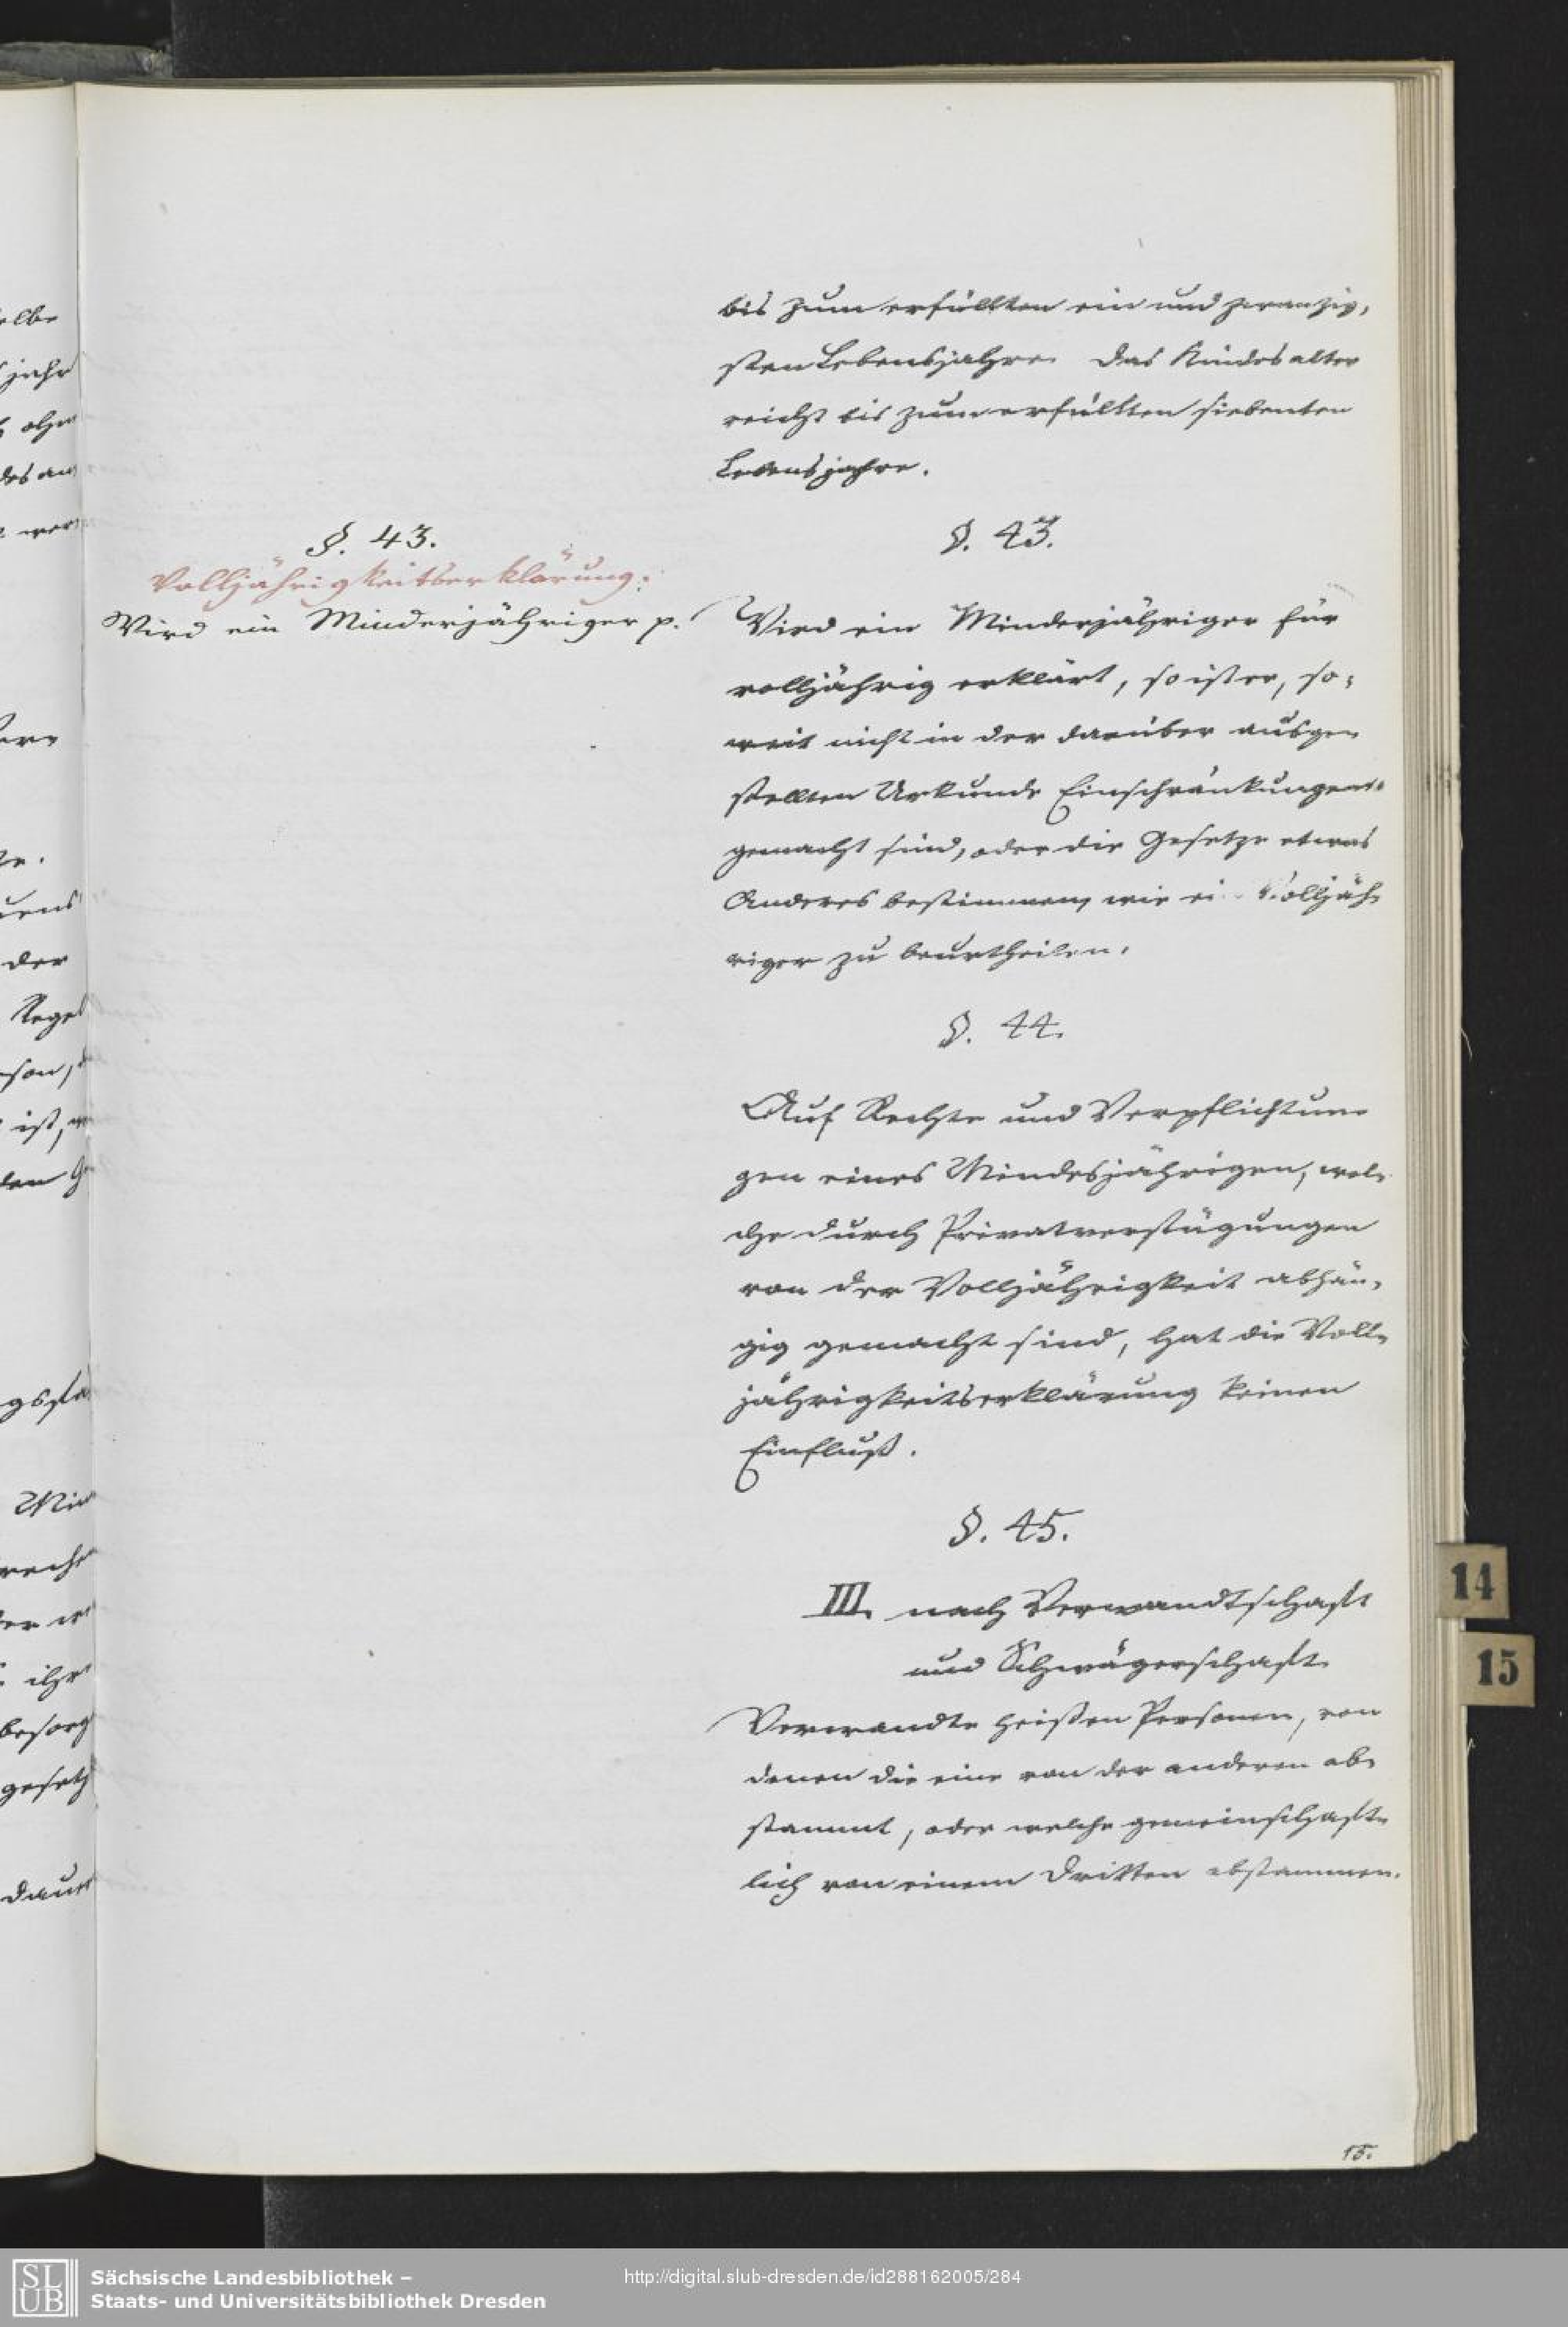 bis zum erfüllten ein und zwanzig,
sten Lebensjahre. Das Kindesalter
reicht bis zum erfüllten siebenten
Lebensjahre.
§. 43.
Volljährigkeitserklärung:
Wird ein Minderjähriger p.
§. 43.
Wird ein Minderjähriger für
volljährig erklärt, so ist er, so-
weit nicht in der darüber ausge-
stellten Urkunde Einschränkungen
gemacht sind, oder die Gesetze etwas
Anderes bestimmen, wie ei Volljäh-
riger zu beurtheilen.
§. 44.
Auf Rechte und Verpflichtun-
gen eines Minderjährigen, wel-
che durch Privatverfügungen
von der Volljährigkeit abhän-
gig gemacht sind, hat die Voll-
jährigkeitserklärung keinen
Einfluß.
§. 45.
III. nach Verwandtschaft
und Schwägerschaft.
Verwandte heißen Personen, von
denen die eine von der anderen ab-
stammt, oder welche gemeinschaft-
lich von einem Dritten abstammen.
15.
14
15
SLUB
Sächsische Landesbibliothek –
Staats- und Universitätsbibliothek Dresden
http://digital.slub-dresden.de/id288162005/284